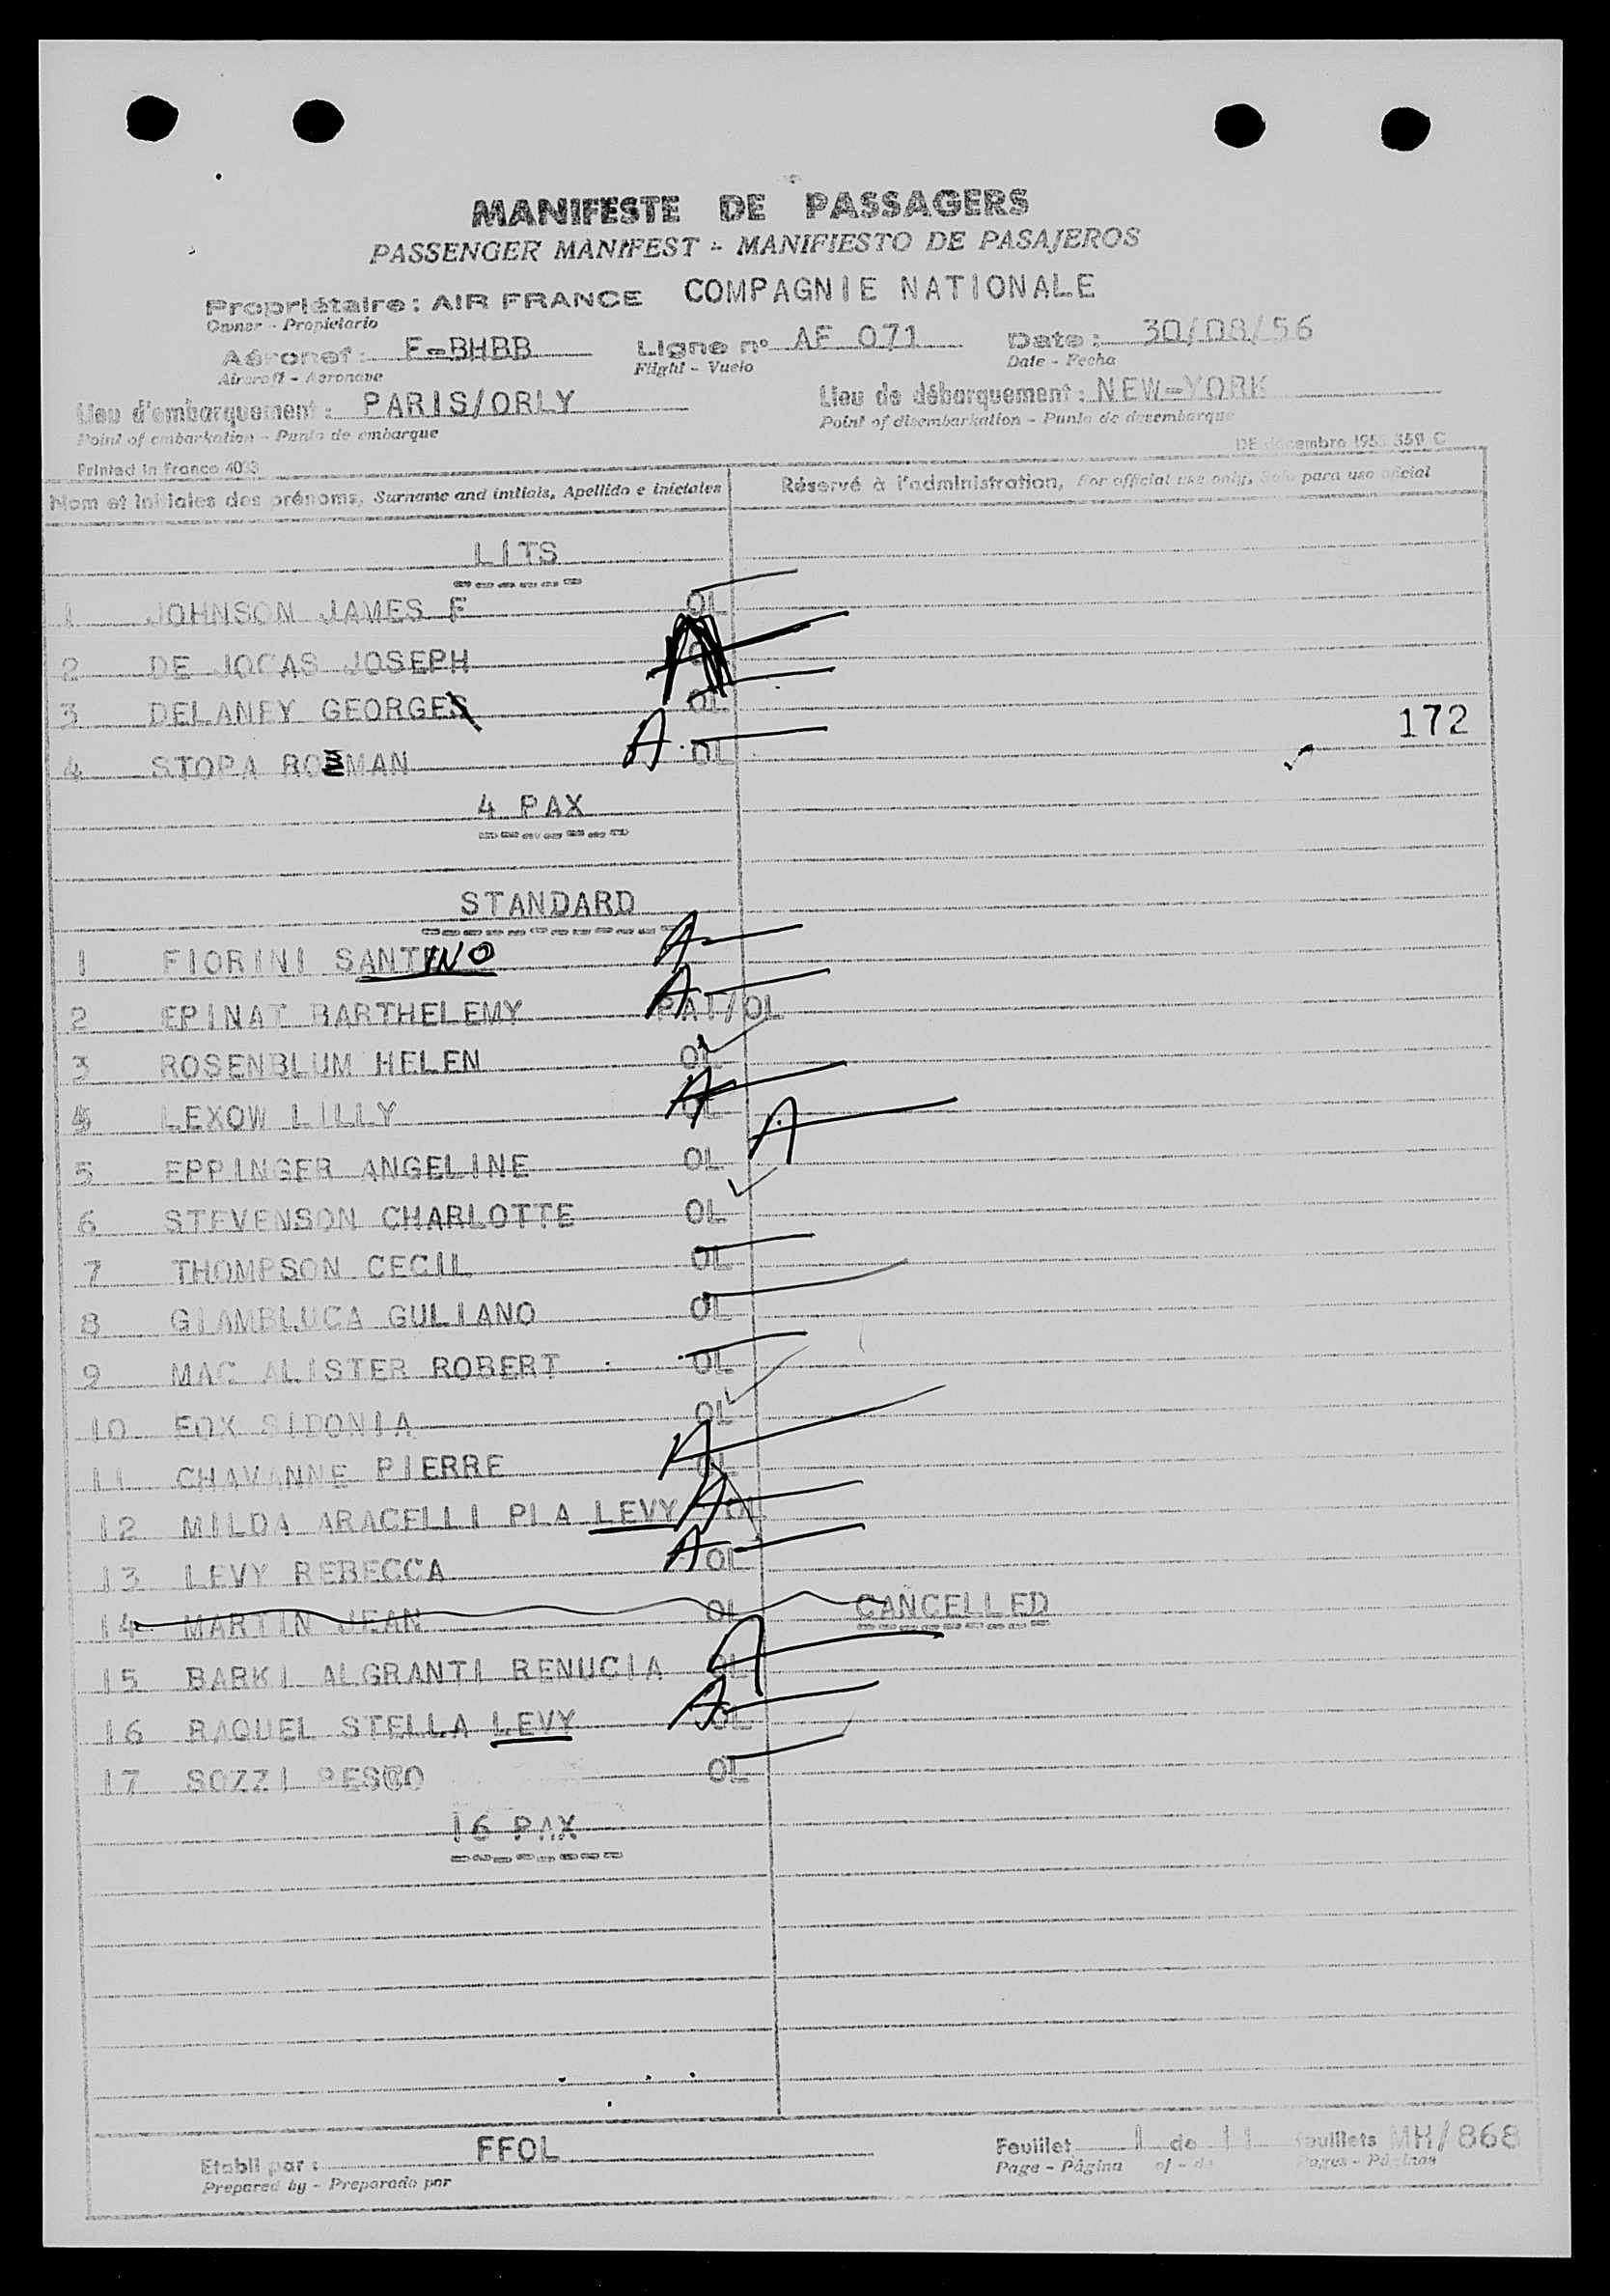 MANIFESTE DE PASSAGERS
PASSENGER MANIFEST - MANIFIESTO DE PASAJEROS
Propriétaire : AIR FRANCE COMPAGNIE NATIONALE
Owner - Propietario
Aéronef : F-BHBB Ligne n° AF 071 Date : 30/08/56
Aircraft - Aeronave Flight - Vuelo Date - Fecha
Lieu d'embarquement : PARIS/ORLY Lieu de débarquement : NEW-YORK
Point of embarkation - Punto de embarque Point of disembarkation - Punto de desembarque
Printed in France 4033 DE décembre 1955 C
Nom et initiales des prénoms, Surname and initials, Apellido e iniciales Réservé à l'administration, For official use only, Solo para uso oficial
LITS
1 JOHNSON JAMES F OL
2 DE JOCAS JOSEPH A
3 DELANEY GEORGES OL
172
4 STOPA ROMAN A OL
4 PAX
STANDARD
1 FIORINI SANTINO A
2 EPINAT BARTHELEMY A PAT/OL
3 ROSENBLUM HELEN OL
4 LEXOW LILLY A OL
5 EPPINGER ANGELINE OL A
6 STEVENSON CHARLOTTE OL
7 THOMPSON CECIL OL
8 GIAMBLUCA GULIANO OL
9 MAC ALISTER ROBERT OL
10 FOX SIDONIA OL
11 CHAVANNE PIERRE A OL
12 MILDA ARACELLI PLA LEVY A OL
13 LEVY REBECCA A OL
14 MARTIN JEAN OL CANCELLED
15 BARKI ALGRANTI RENUCIA A OL
16 RAQUEL STELLA LEVY A OL
17 SOZZI OL
16 PAX
Etabli par : FFOL Feuillet 1 de 11 feuillets MH/868
Prepared by - Preparado por Page - Página of - de Pages - Páginas